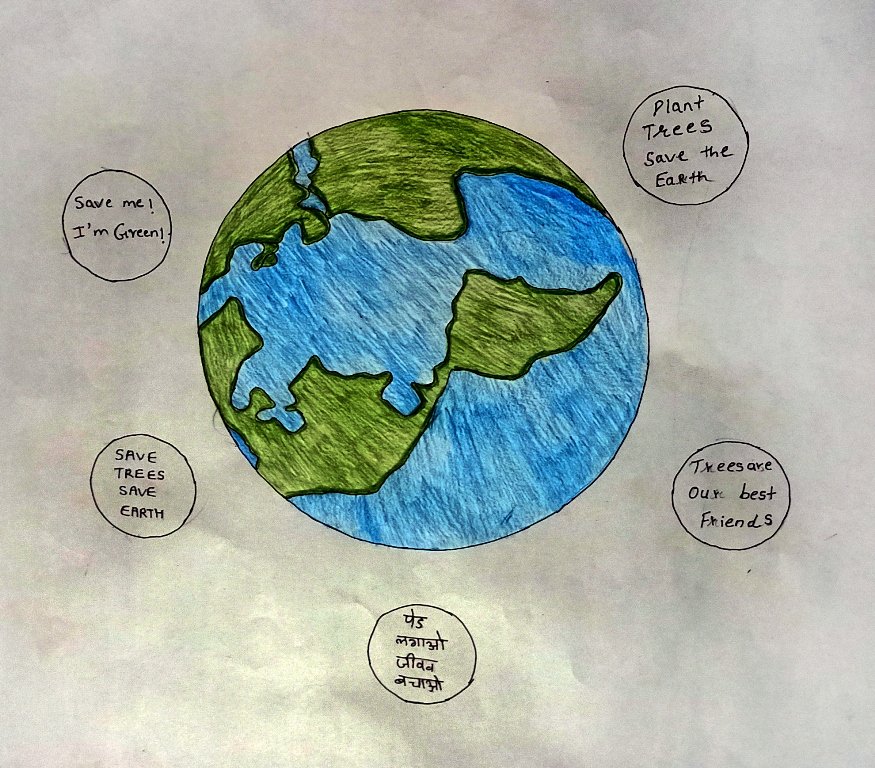 Plant
Trees
Save the
Earth
Save me!
I'm Green!
SAVE
TREES
SAVE
EARTH
Trees are
our best
Friends
पेड
लगाओ
जीवन
बचाओ